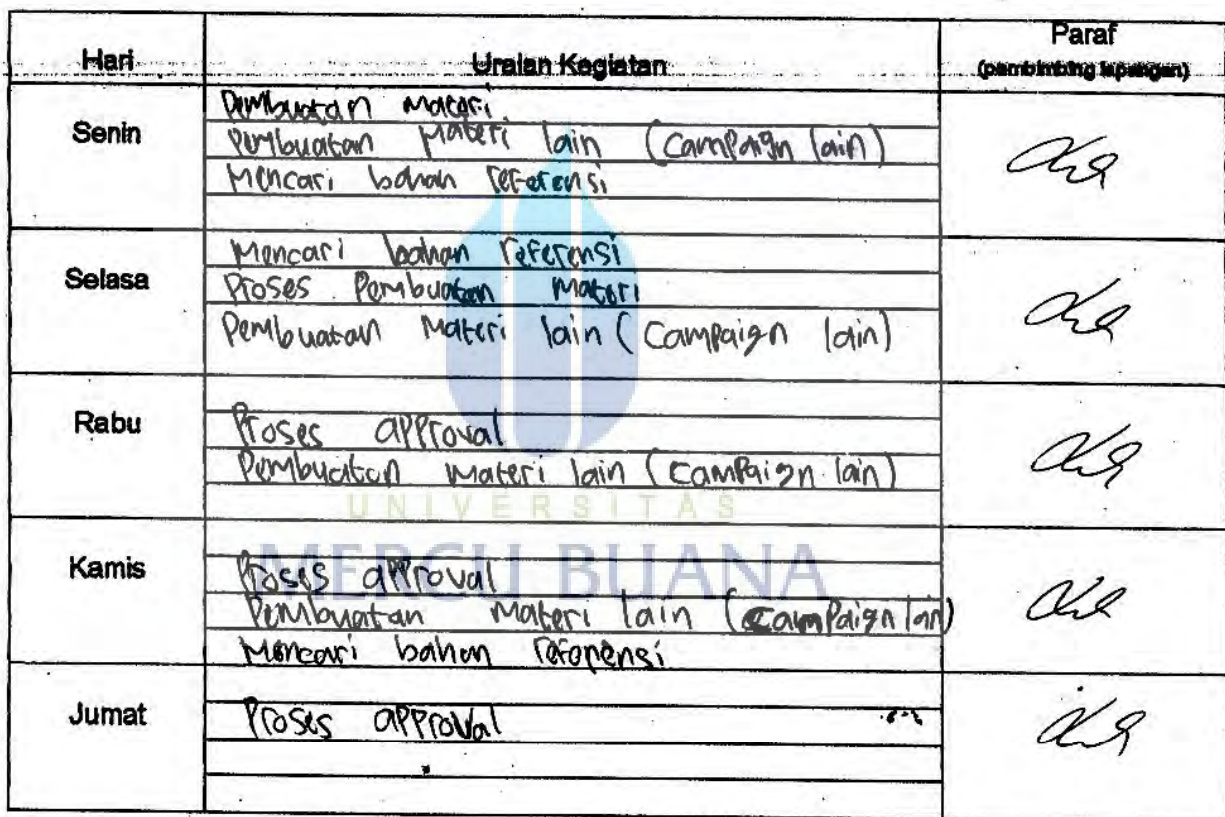 Hari Uraian Kegiatan Paraf
(pembimbing lapangan)
Senin
Pembuatan Materi
Pembuatan Materi lain (Campaign lain)
Mencari bahan referensi
Selasa
Mencari bahan referensi
Proses Pembuatan Materi
Pembuatan Materi lain (Campaign lain)
Rabu
Proses approval
Pembuatan Materi lain (Campaign lain)
UNIVERSITAS
MERCU BUANA
Kamis
Proses approval
Pembuatan Materi lain (Campaign lain)
Mencari bahan referensi
Jumat
Proses approval